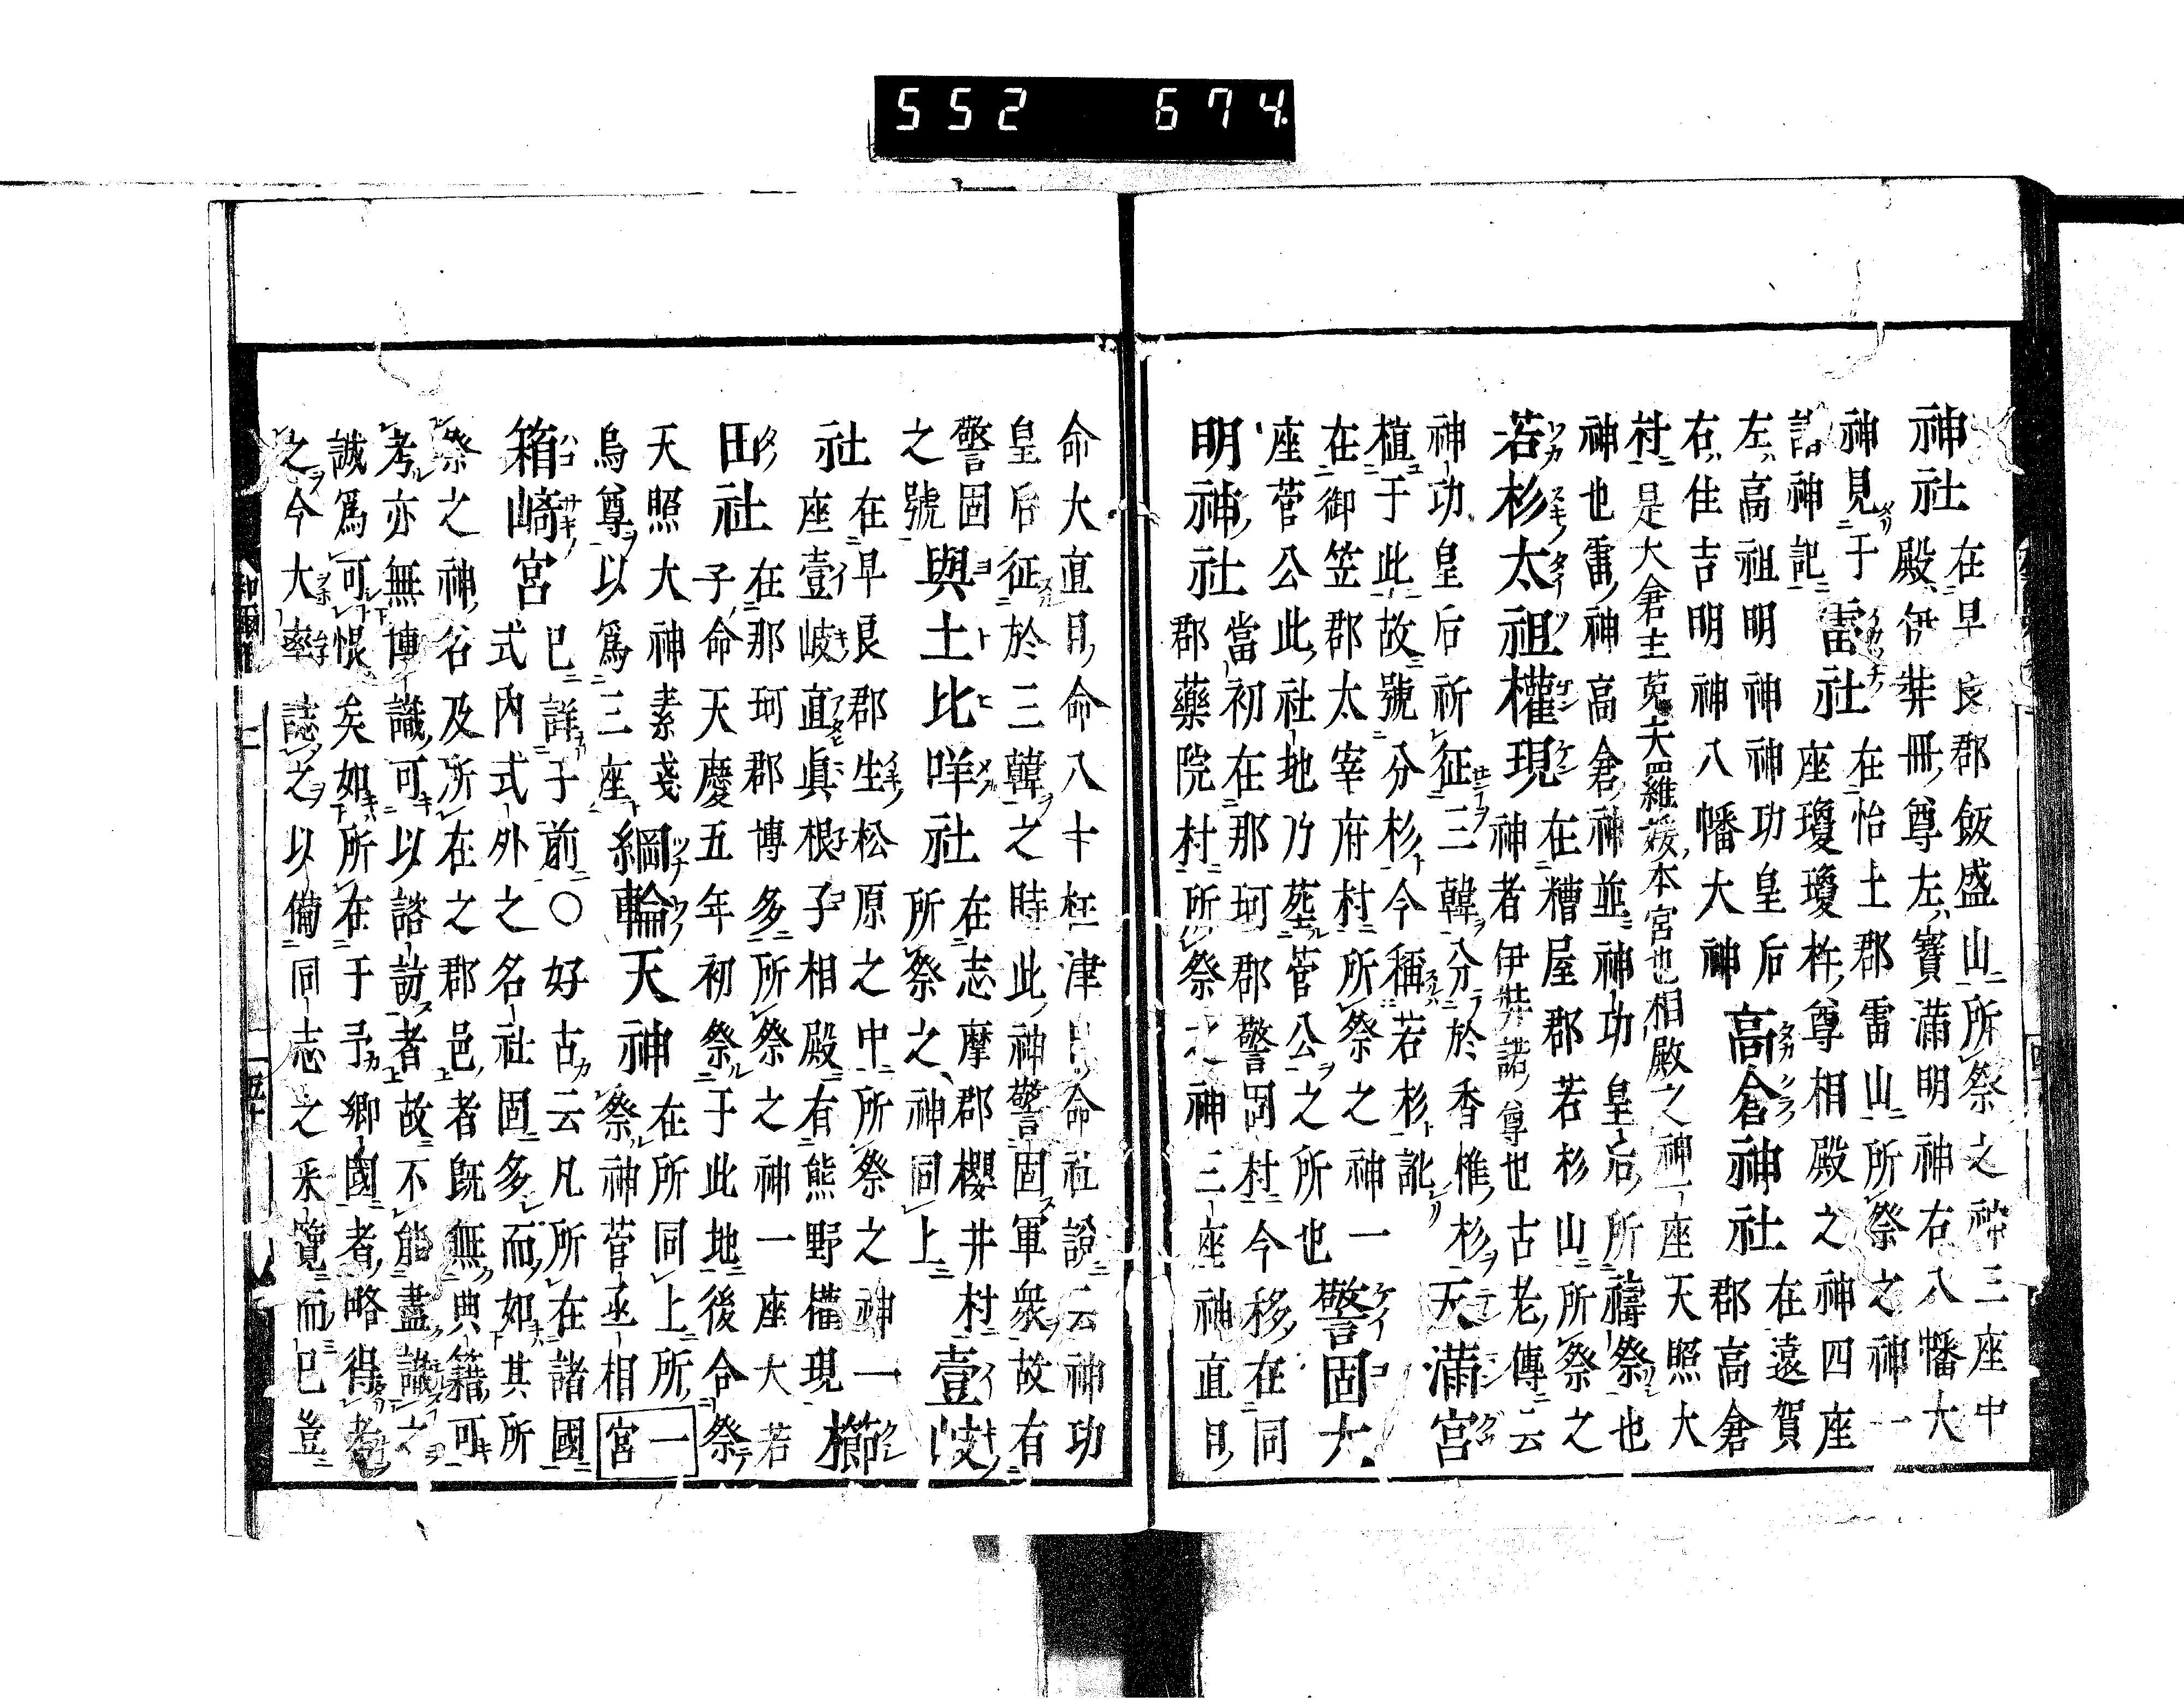 神社
在早良郡飯盛山所祭之神三座中
殿伊弉冊尊左寶滿明神右八幡大
神見于
諸神記
雷社
在怡土郡雷山所祭之神一
座瓊瓊杵尊相殿之神四座
左高祖明神神功皇后
右住吉明神八幡大神
高倉神社
在遠賀
郡高倉
村是大倉主菟夫羅媛本宮也相殿之神一座天照大
神也雷神高倉神並神功皇后所禱祭也
若杉太祖權現
在糟屋郡若杉山所祭之
神者伊弉諾尊也古老傳云
神功皇后祈征三韓分於香惟杉
植于此故號分杉今稱若杉訛
天滿宮
在御笠郡太宰府村所祭之神一
座菅公此社地乃塟菅公之所也
警固大
明神社
當初在那珂郡警固村今移在同
郡藥院村所祭之神三座神直日
命大直日命八十枉津日命社說云神功
皇后征於三韓之時此神警固軍衆故有
警固
之號
與土比咩社
在志摩郡櫻井村
所祭之神同上
壹岐
社
在早良郡生松原之中所祭之神一
座壹岐直眞根子相殿有熊野權現
櫛
田社
在那珂郡博多所祭之神一座大若
子命天慶五年初祭于此地後合祭
天照大神素戔
烏尊以爲三座
綱輪天神
在所同上所
祭神菅丞相
一
宮
箱崎宮
已詳子前〇好古云凡所在諸國
式內式外之名社固多而如其所
祭之神名及所在之郡邑者既無典籍可
考亦無博識可以諮訪者故不能盡識之
誠爲可恨矣如所在于予鄉國者略得考
之今大率誌之以備同志之采覽而已豈
552 674